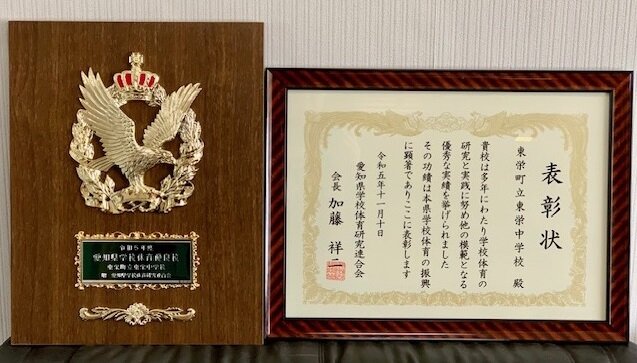 令和5年度
愛知県学校体育優良校
東栄町立東栄中学校
贈 愛知県学校体育研究連合会
表彰状
東栄町立東栄中学校 殿
貴校は多年にわたり学校体育の
研究と実践に努め他の模範となる
優秀な実績を挙げられました
その功績は本県学校体育の振興
に顕著でありここに表彰します
令和五年十一月十日
愛知県学校体育研究連合会
会長 加藤 祥二